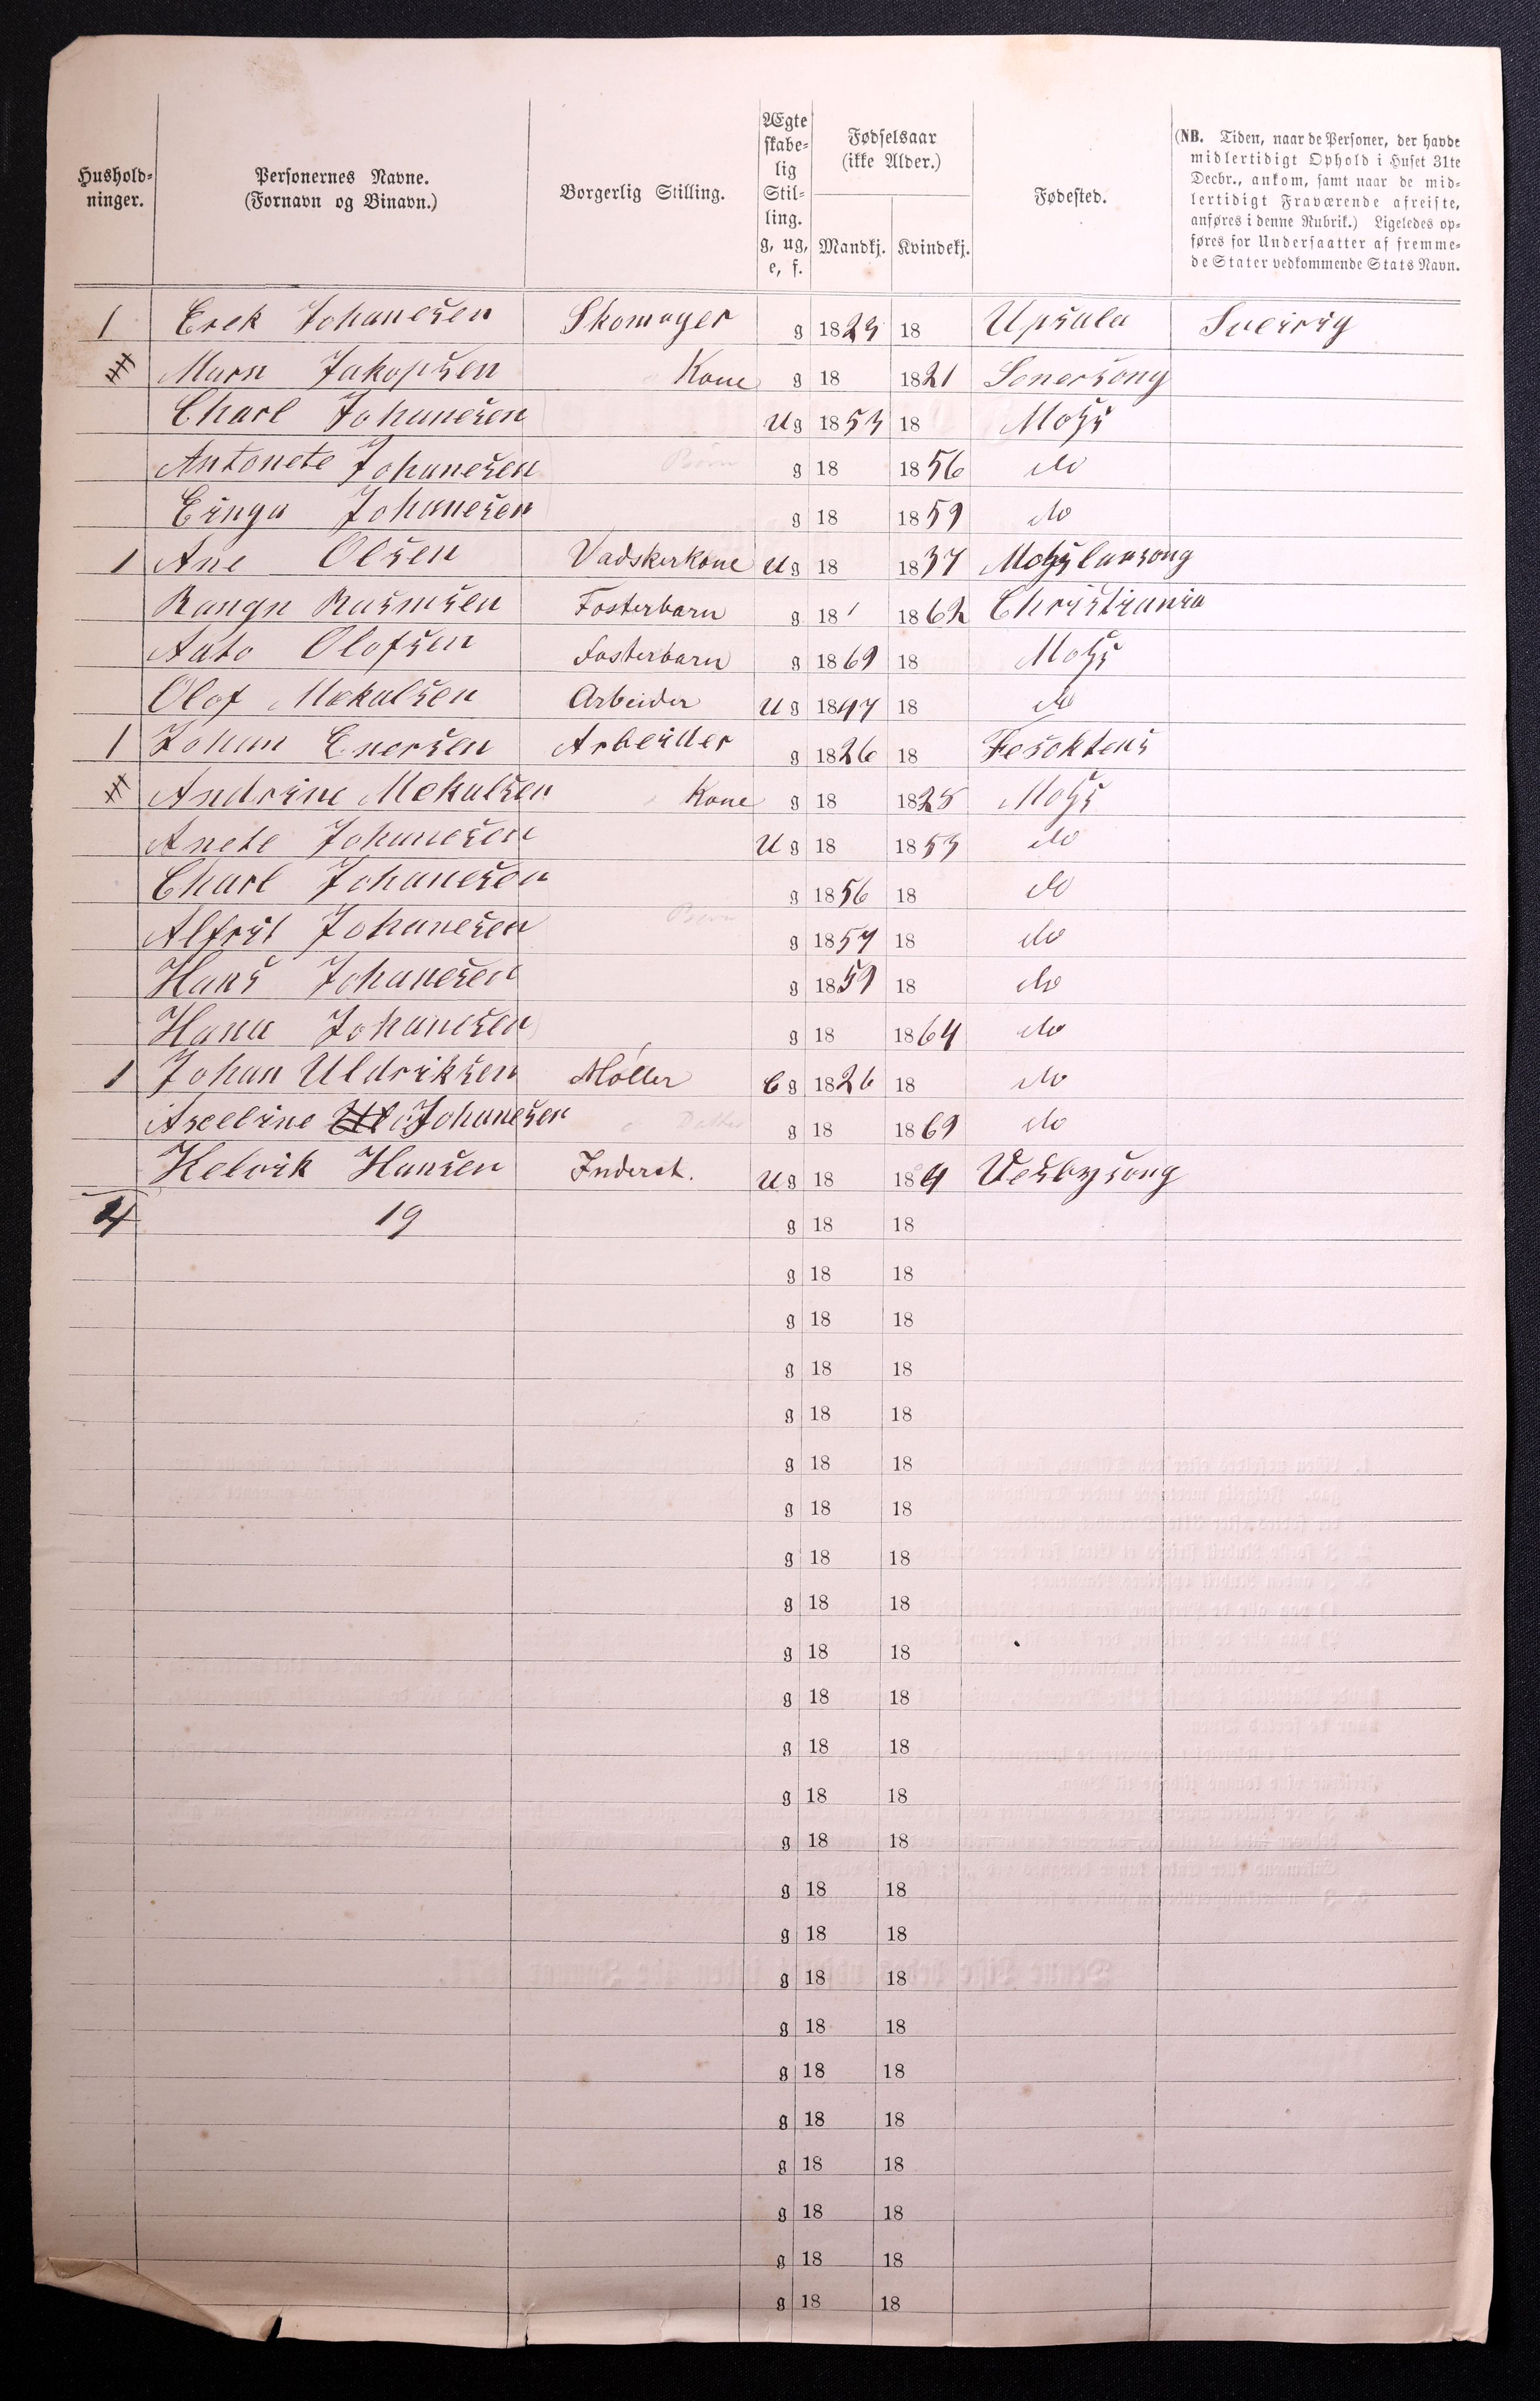 Hushold-
ninger.
Personernes Navne.
(Fornavn og Binavn.)
Borgerlig Stilling.
Ægte
skabe-
lig
Stil-
ling.
g, ug,
e, f.
Fødselsaar
(ikke Alder.)
Mandkj. Kvindekj.
Fødested.
(NB. Tiden, naar de Personer, der havde
midlertidigt Ophold i Huset 31te
Decbr., ankom, samt naar de mid-
lertidigt Fraværende afreiste,
anføres i denne Rubrik.) Ligeledes op-
føres for Undersaatter af fremme-
de Stater vedkommende Stats Navn.
1 Erek Johanesen Skomager g 1823 18 Upsala Sveirig
Marn Jakopsen Kone g 18 1821 Sonersong
Charl Johanesen Ug 1853 18 Moss
Antonete Johanesen Børn g 18 1856 do
Eringa Johanesen g 18 1859 do
1 Ane Olsen Vadskerkone Ug 18 1837 Mosslansong
Rangn Rasmsen Fosterbarn g 18 1862 Christiania
Aato Olofsen Fosterbarn g 1869 18 Moss
Olof Mekalsen Arbeider Ug 1847 18 do
1 Johan Enersen Arbeider g 1826 18 Fesoktens
Andrine Mekalsen Kone g 18 1825 Moss
Anete Johanesen Ug 18 1853 do
Charl Johanesen g 1856 18 do
Alfrit Johanesen Børn g 1857 18 do
Hans Johanesen g 1859 18 do
Hana Johanesen g 18 1864 do
1 Johan Uldriksen Møller Eg 1826 18 do
Axceline Johanesen Datter g 18 1869 do
Helvik Hansen Inderst. Ug 18 184 Vesbysong
4 19 g 18 18
g 18 18
g 18 18
g 18 18
g 18 18
g 18 18
g 18 18
g 18 18
g 18 18
g 18 18
g 18 18
g 18 18
g 18 18
g 18 18
g 18 18
g 18 18
g 18 18
g 18 18
g 18 18
g 18 18
g 18 18
g 18 18
g 18 18
g 18 18